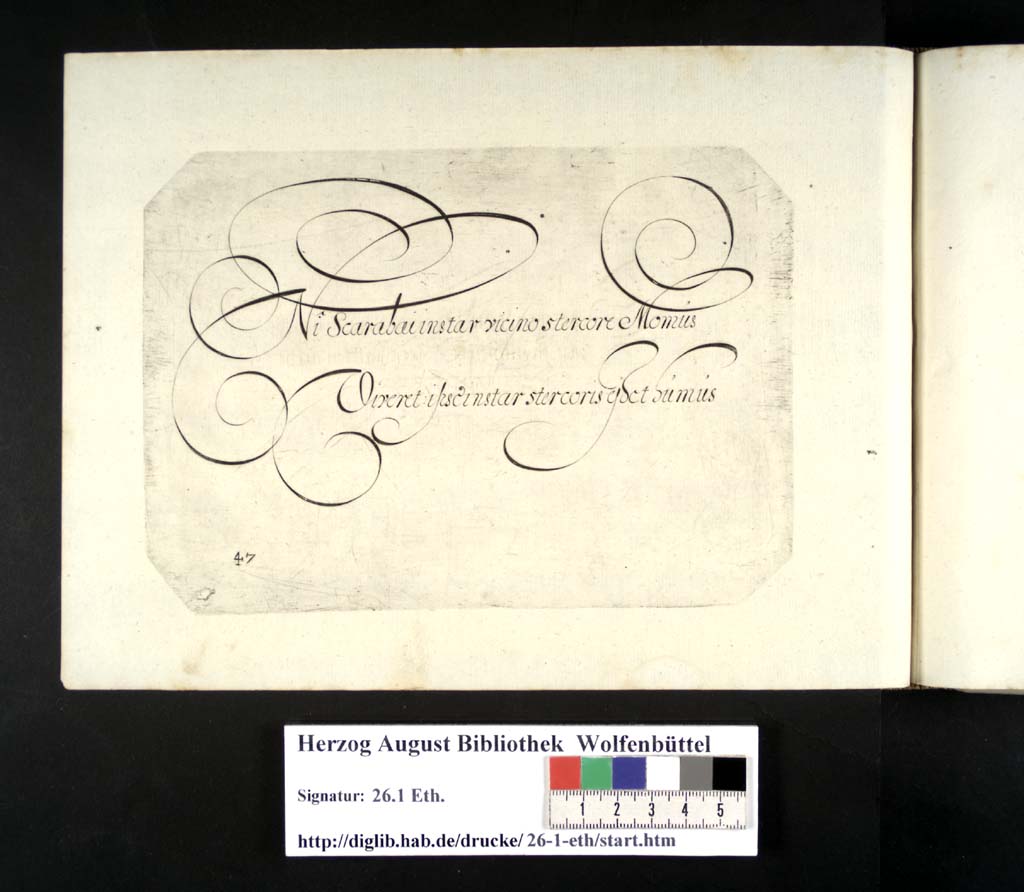 Ni Scarabæi instar vicino stercore Momus
Viveret: ipse instar stercoris esset humus
47
Herzog August Bibliothek Wolfenbüttel
Signatur: 26.1 Eth.
1 2 3 4 5
http://diglib.hab.de/drucke/ 26-1-eth/start.htm